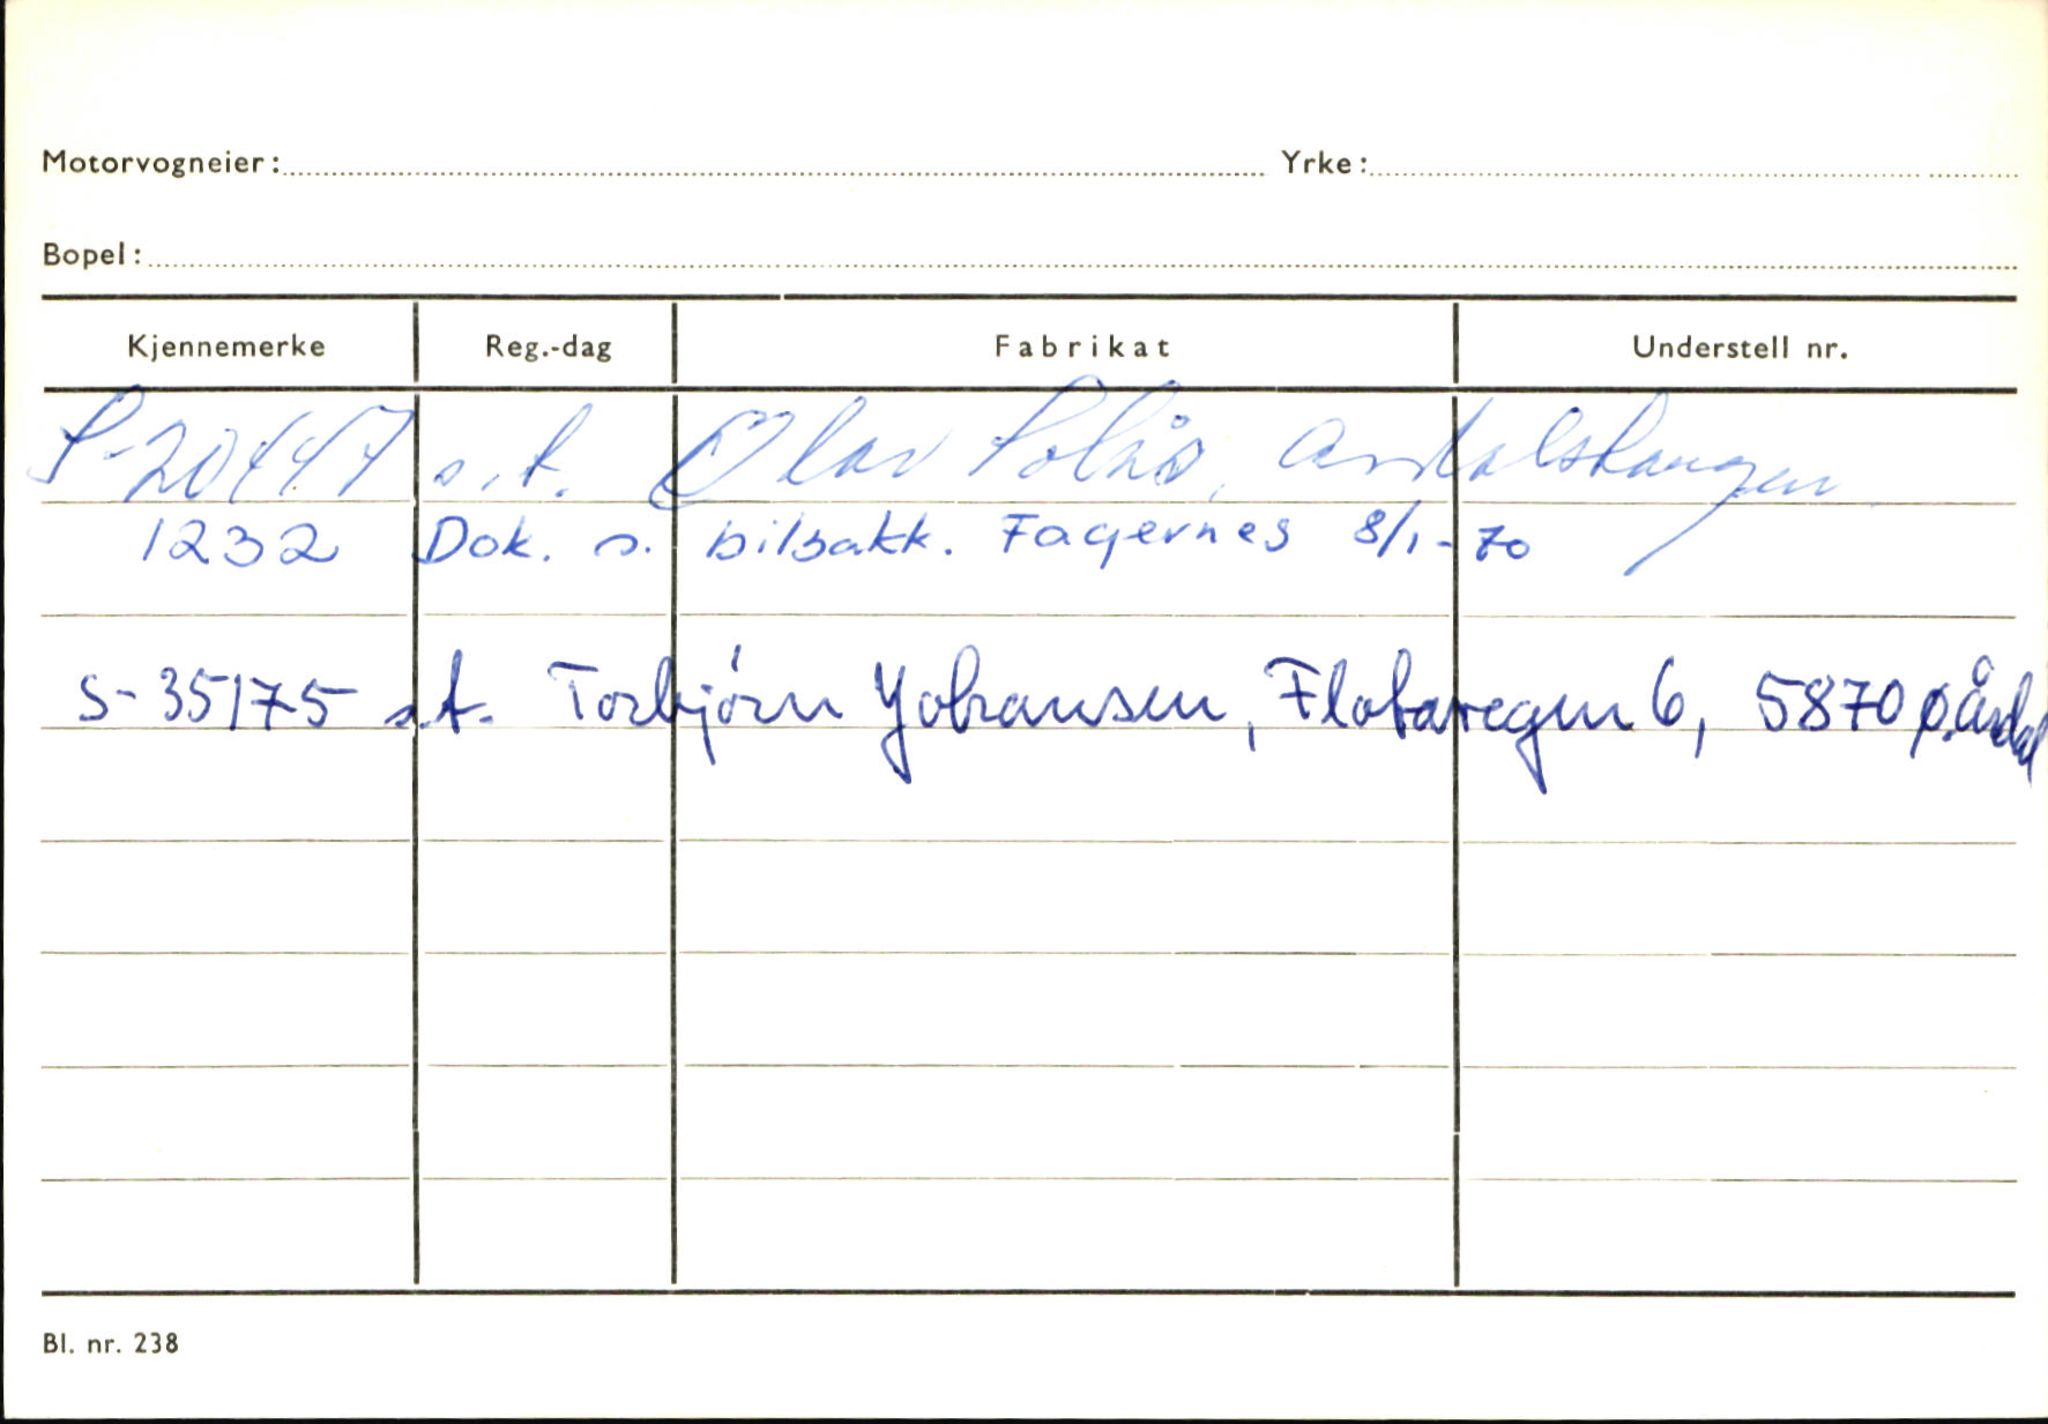 Motorvogneier: Yrke:
Bopel:
Kjennemerke Reg.-dag Fabrikat Understell nr.
S-20447 s.t. Olav Solås,
1232 Dok. s. bilsakk. Fagernes 8/1-70
S-35175 s.t. Torbjørn Johansen, 6, 5870 Ø.Årdal
Bl. nr. 238